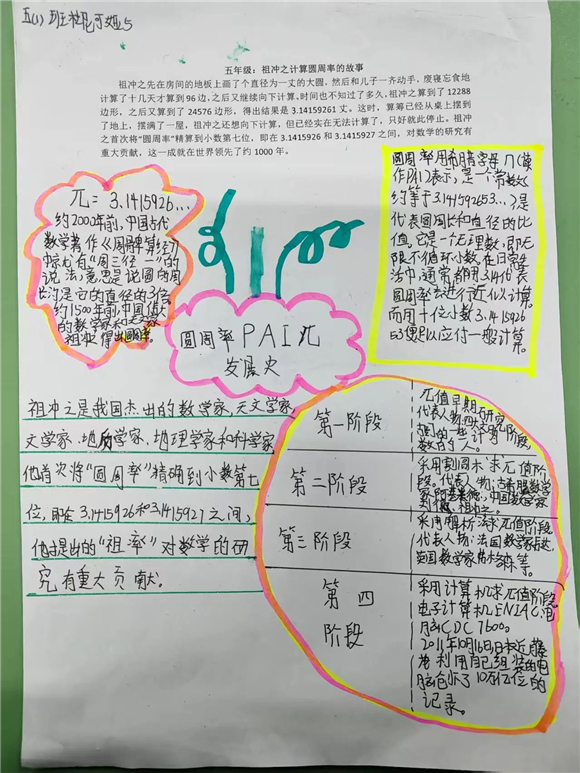 五(1)班
五年级：祖冲之计算圆周率的故事
祖冲之先在房间的地板上画了个直径为一丈的大圆，然后和儿子一齐动手，废寝忘食地
计算了十几天才算到96边，之后又继续向下计算，时间也不知过了多久，祖冲之算到了12288
边形，之后又算到了24576边形，得出结果是3.14159261丈。这时，算筹已经从桌上摆到
了地上，摆满了一屋，祖冲之还想向下计算，但已经实在无法计算了，只好就此停止。祖冲
之首次将“圆周率”精算到小数第七位，即在3.1415926和3.1415927之间，对数学的研究有
重大贡献，这一成就在世界领先了约1000年。
π=3.1415926...
约2000年前，中国古代
数学著作《周髀算经》
中就有“周三径一”的
说法，意思是说圆的周
长约是它的直径的3倍。
约1500年前，中国伟大
的数学家和天文家
祖冲之得出圆周率。
圆周率用希腊字母π(读
作pài)表示，是一个常数(
约等于3.141592653...)是
代表圆周长和直径的比
值。它是一个无理数，即无
限不循环小数。在日常生
活中，通常都用3.14代表
圆周率去进行近似计算。
而用十位小数3.1415926
53便足以应付一般计算。
圆周率PAI π
发展史
祖冲之是我国杰出的数学家，天文学家，
文学家、地质学家、地理学家和科学家
他首次将“圆周率”精确到小数第七
位，即在3.1415926和3.1415927之间，
他提出的“祖率”对数学的研
究有重大贡献。
第一阶段
π值早期研究
代表人物
第二阶段
采用割圆术求π值阶
段。代表人物：古希腊数学
中国数学家
祖冲之。
第三阶段
采用解析法求π值阶段
代表人物：法国数学家韦达，
英国数学家 等。
第四
阶段
采用计算机求π值阶段
电子计算机ENIAC，电
脑CDC7600。
2011年10月16日，日本近藤
茂利用自己组装的电
脑 10万亿位的
记录。